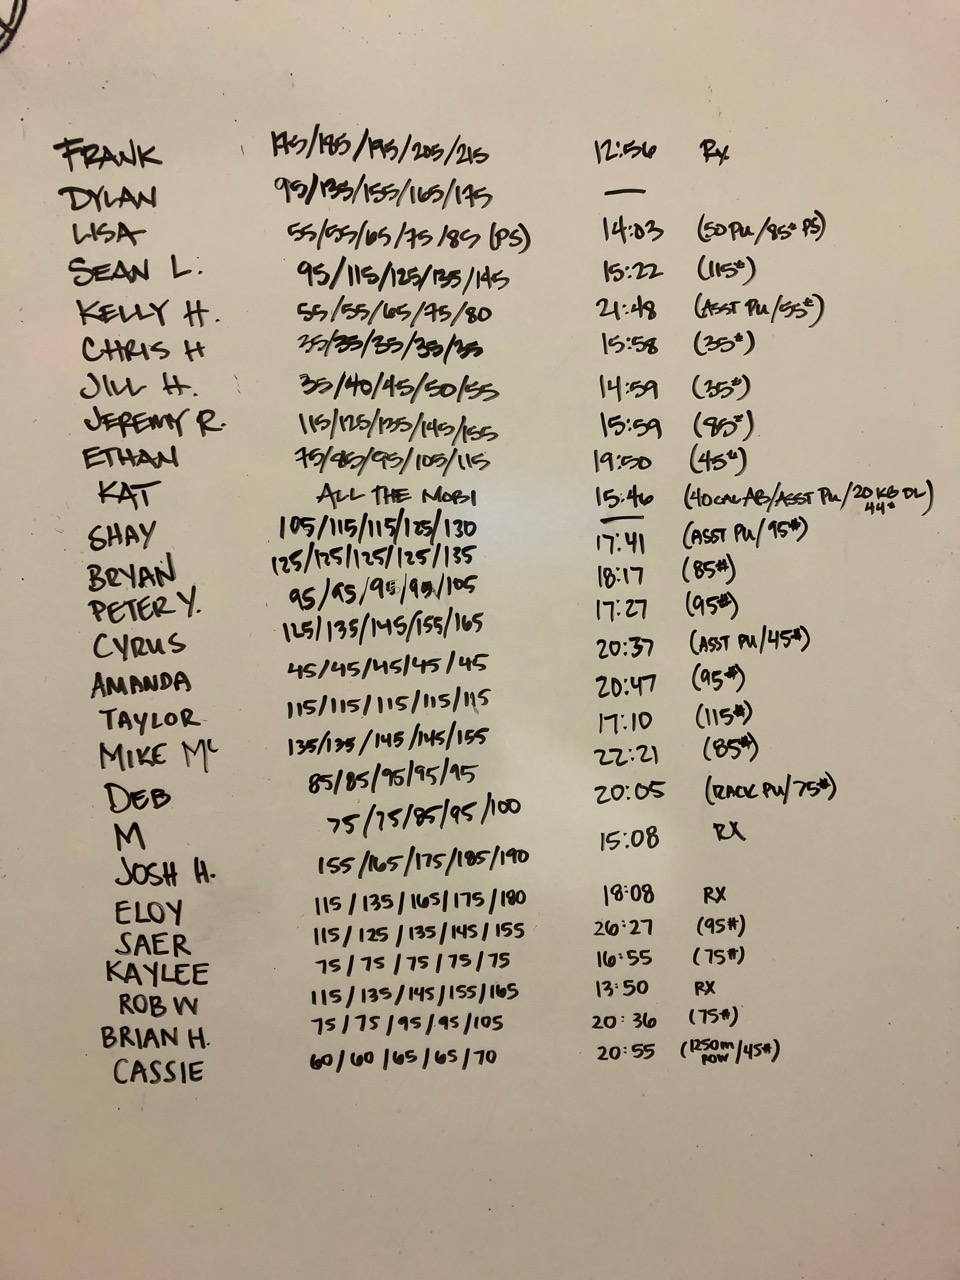 FRANK 175/185/195/205/215 12:56 RX
DYLAN 95/135/155/165/175 —
LISA 55/55/65/75/85 (PS) 14:03 (50 PU/85# PS)
SEAN L. 95/115/125/135/145 15:22 (115#)
KELLY H. 55/55/65/75/80 21:48 (ASST PU/55#)
CHRIS H 35/35/35/35/35 15:58 (35#)
JILL H. 35/40/45/50/55 14:59 (35#)
JEREMY R. 115/125/135/145/155 15:59 (85#)
ETHAN 75/85/95/105/115 19:50 (45#)
KAT ALL THE MOBI 15:46 (40 CAL AB/ASST PU/20 KB DL 44#)
SHAY 105/115/115/125/130 —
BRYAN 125/125/125/125/135 17:41 (ASST PU/95#)
PETER Y. 95/95/95/95/105 18:17 (85#)
CYRUS 125/135/145/155/165 17:27 (95#)
AMANDA 45/45/45/45/45 20:37 (ASST PU/45#)
TAYLOR 115/115/115/115/115 20:47 (95#)
MIKE Mc 135/135/145/145/155 17:10 (115#)
DEB 85/85/95/95/95 22:21 (85#)
M 75/75/85/95/100 20:05 (RACK PU/75#)
JOSH H. 155/165/175/185/190 15:08 RX
ELOY 115/135/165/175/180 18:08 RX
SAER 115/125/135/145/155 26:27 (95#)
KAYLEE 75/75/75/75/75 16:55 (75#)
ROB W 115/135/145/155/165 13:50 RX
BRIAN H. 75/75/95/95/105 20:36 (75#)
CASSIE 60/60/65/65/70 20:55 (1250m ROW/45#)